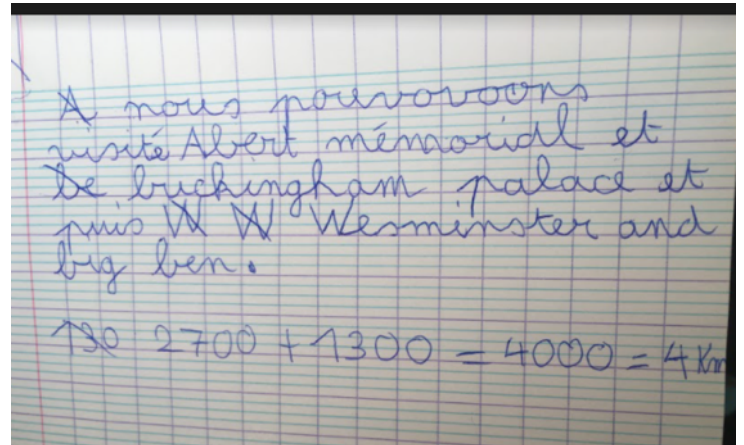 A nous pouvovoons
visité Albert mémorial et
De buckingham palace et
puis W W Wesminster and
big ben.
130 2700 + 1300 = 4000 = 4 Km